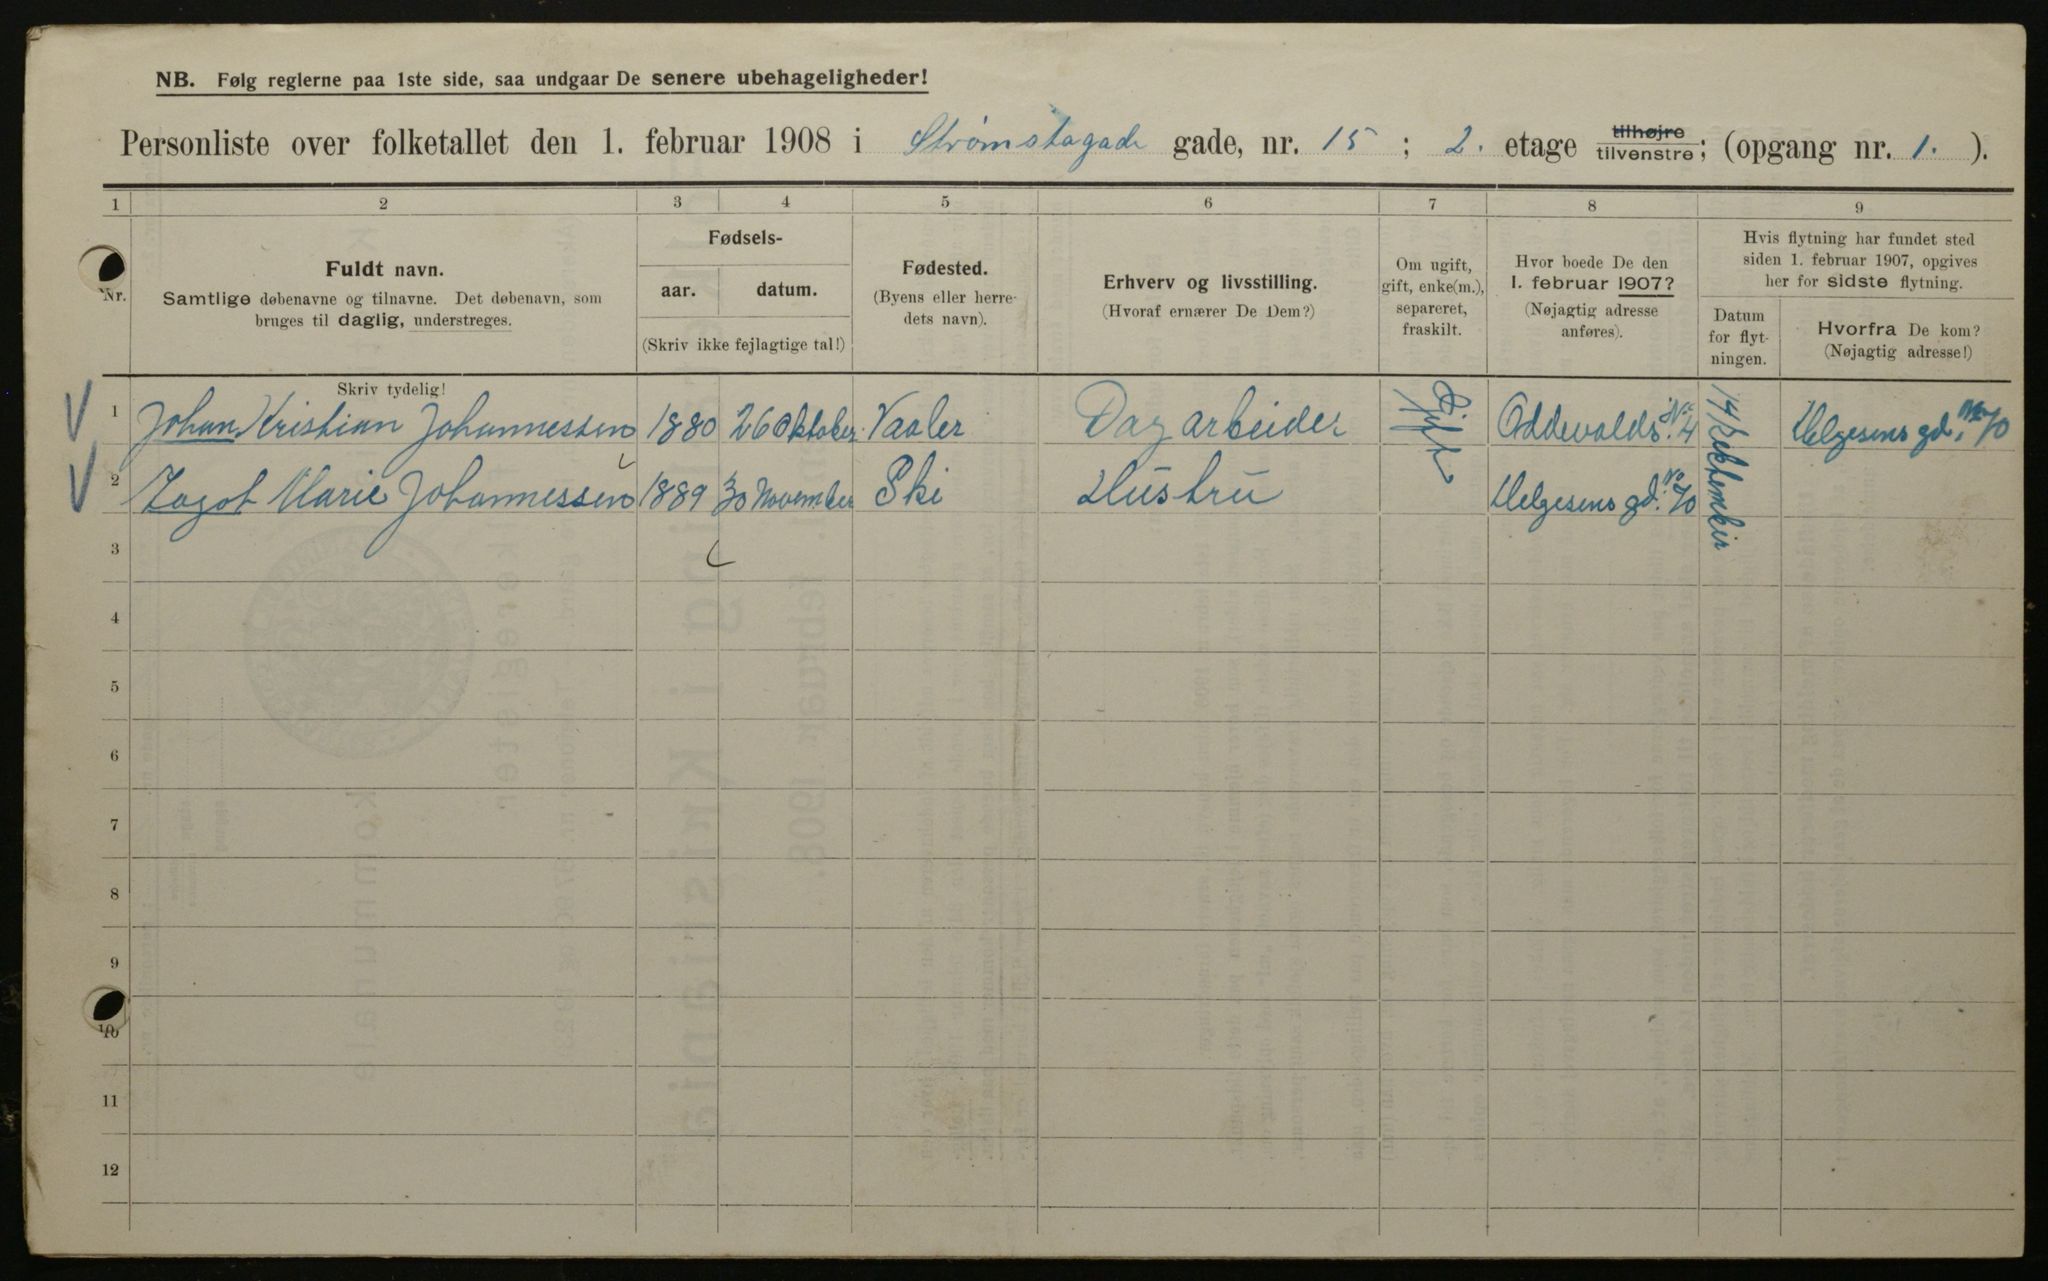 NB. Følg reglerne paa 1ste side, saa undgaar De senere ubehageligheder!
Personliste over folketallet den 1. februar 1908 i Strømstagade gade, nr. 15 ; 2. etage tilhøjre tilvenstre; (opgang nr. 1. ).
1 2 3 4 5 6 7 8 9
Nr.
Fuldt navn.
Samtlige døbenavne og tilnavne. Det døbenavn, som
bruges til daglig, understreges.
Skriv tydelig!
Fødsels-
aar. datum.
(Skriv ikke fejlagtige tal!)
Fødested.
(Byens eller herre-
dets navn).
Erhverv og livsstilling.
(Hvoraf ernærer De Dem?)
Om ugift,
gift, enke(m.),
separeret,
fraskilt.
Hvor boede De den
1. februar 1907?
(Nøjagtig adresse
anføres).
Hvis flytning har fundet sted
siden 1. februar 1907, opgives
her for sidste flytning.
Datum
for flyt-
ningen.
Hvorfra De kom?
(Nøjagtig adresse!)
1 Johan Kristian Johannessen 1880 26 Oktober Vaaler Dagarbeider Gift Oddevalds. No 4 14/ Helgesens gd. No 70
2 Marie Johannessen 1889 30 November Ski Hustru Helgesens gd. No 70
3
4
5
6
7
8
9
10
11
12